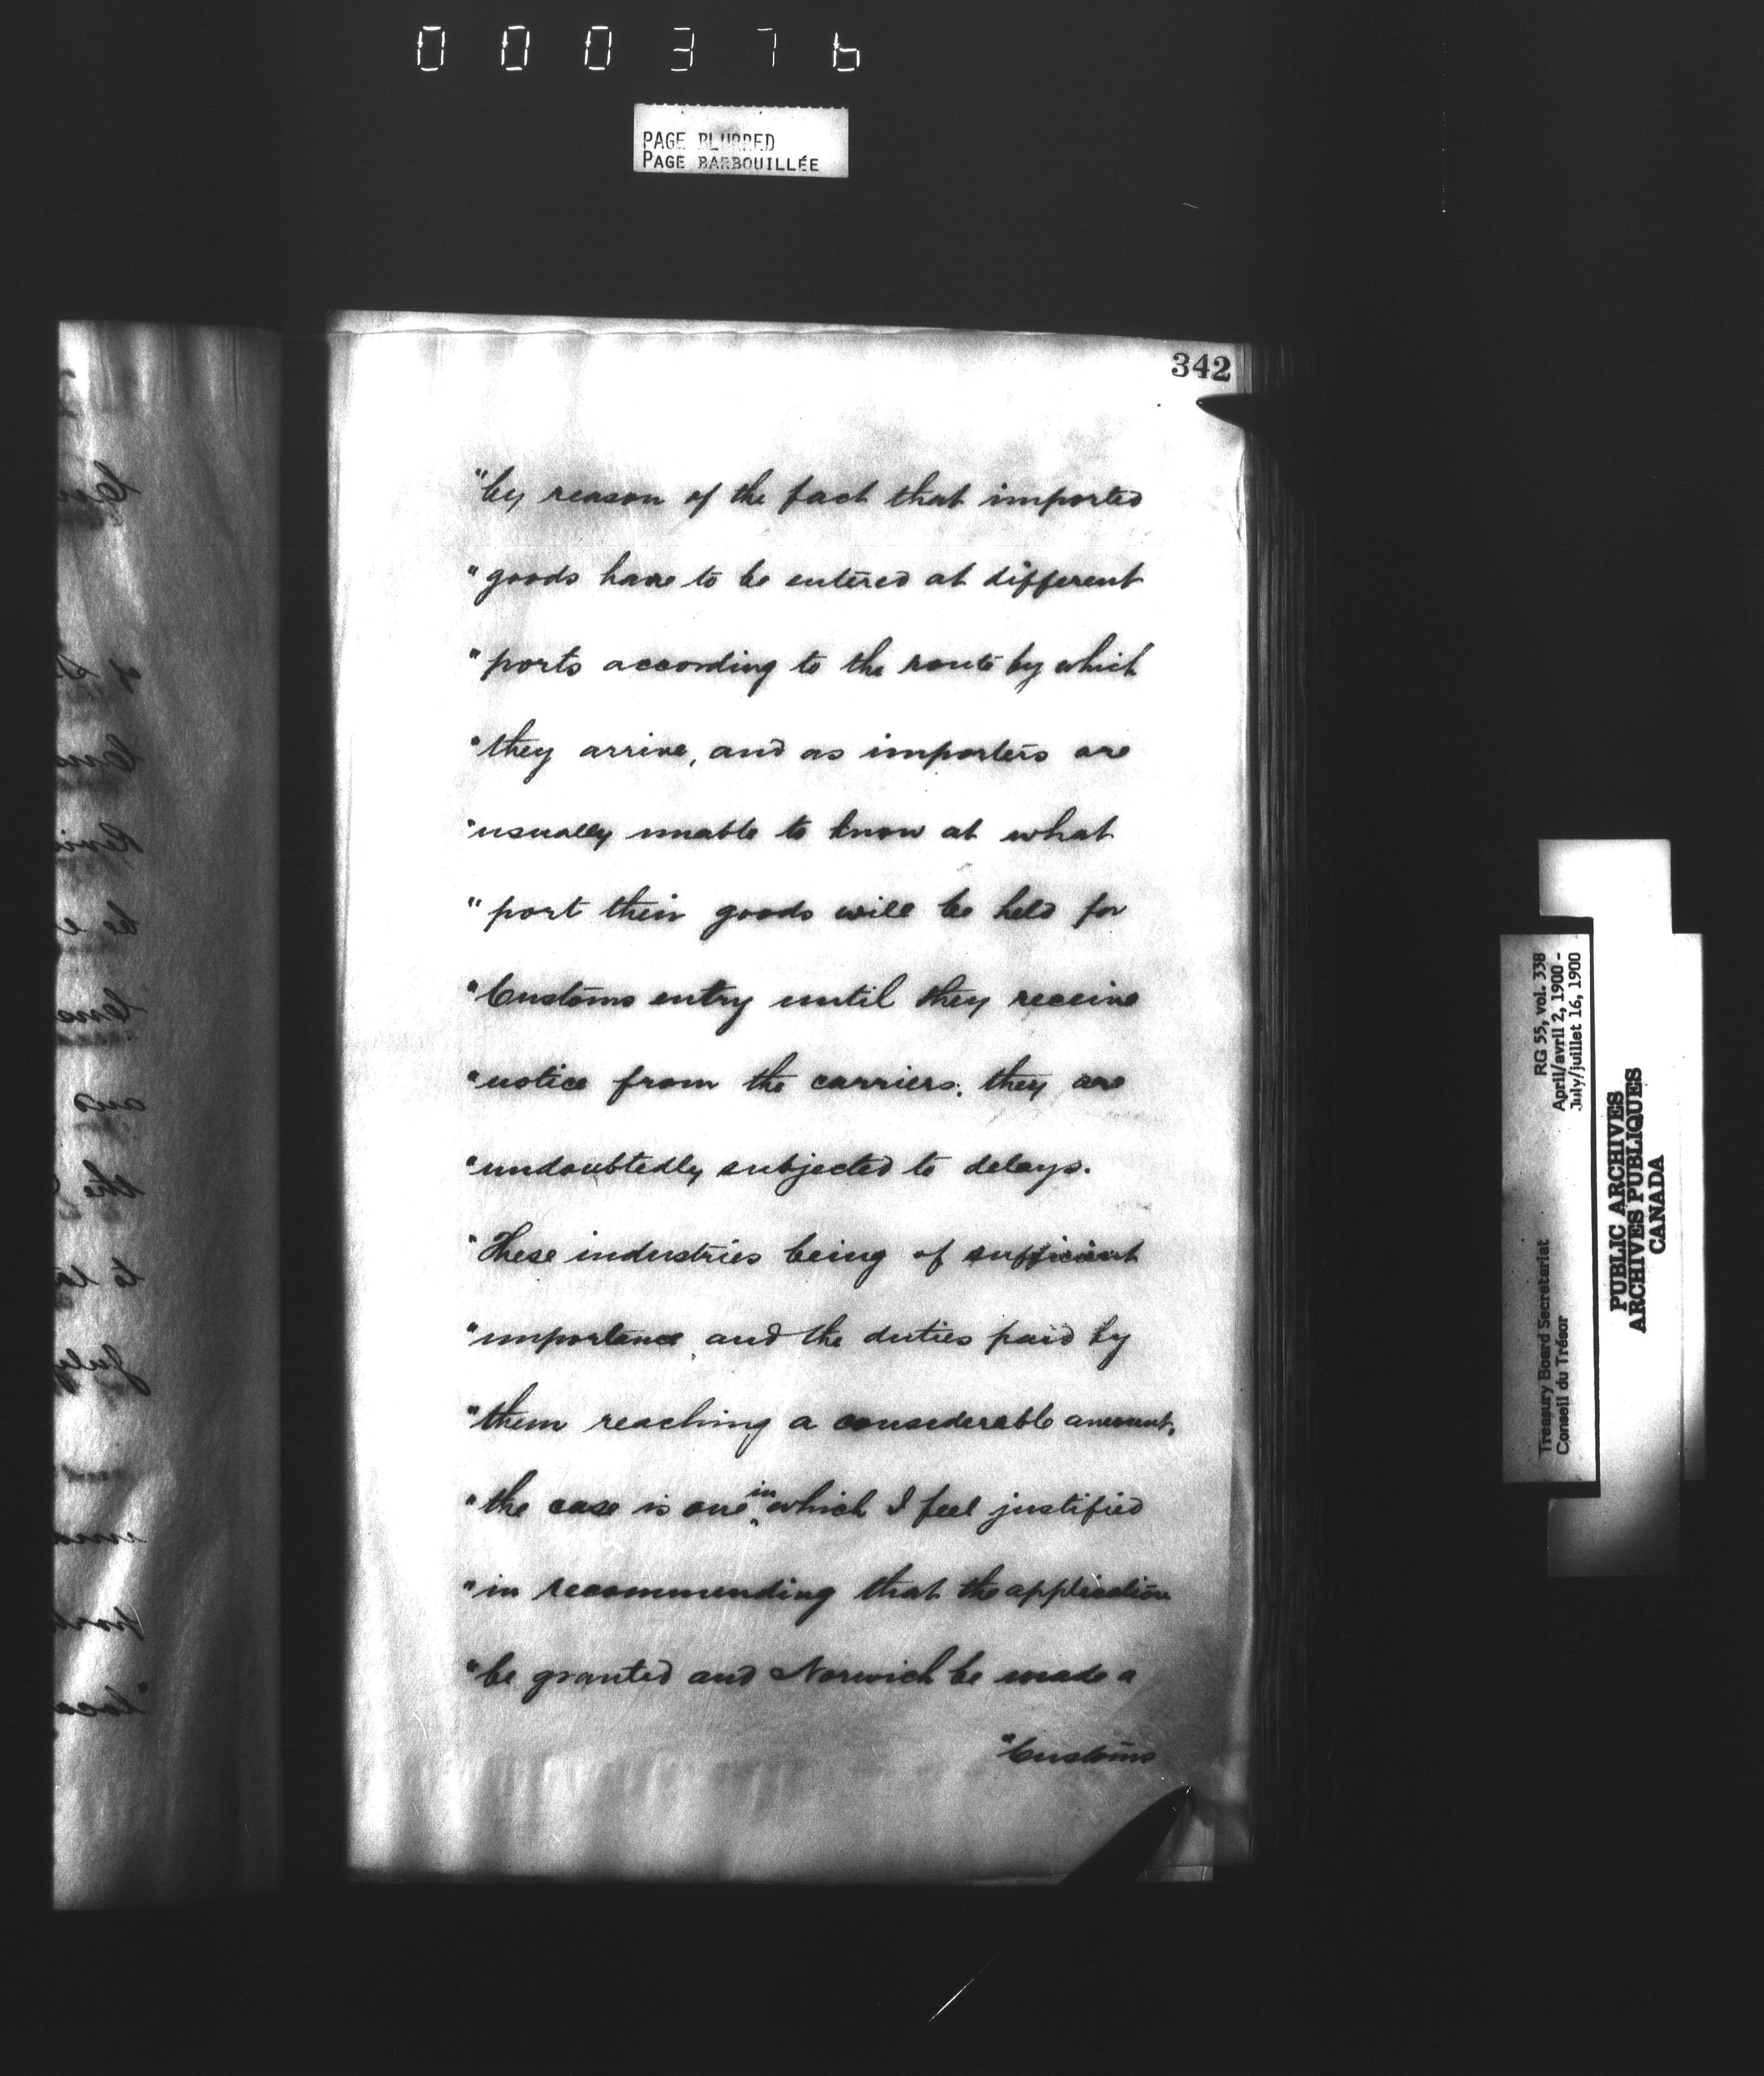 000376
PAGE BLURRED
PAGE BARBOUILLÉE
342
"by reason of the fact that imported
"goods have to be entered at different
"ports according to the route by which
"they arrive, and as importers are
"usually unable to know at what
"port their goods will be held for
"Customs entry until they receive
"notice from the carriers, they are
"undoubtedly subjected to delays.
"These industries being of sufficient
"importance, and the duties paid by
"them reaching a considerable amount,
"the case is one in which I feel justified
"in recommending that the application
"be granted and Norwich be made a
"Customs
Treasury Board Secretariat RG 55, vol. 338
Conseil du Trésor April/avril 2, 1900 -
July/juillet 16, 1900
PUBLIC ARCHIVES
ARCHIVES PUBLIQUES
CANADA